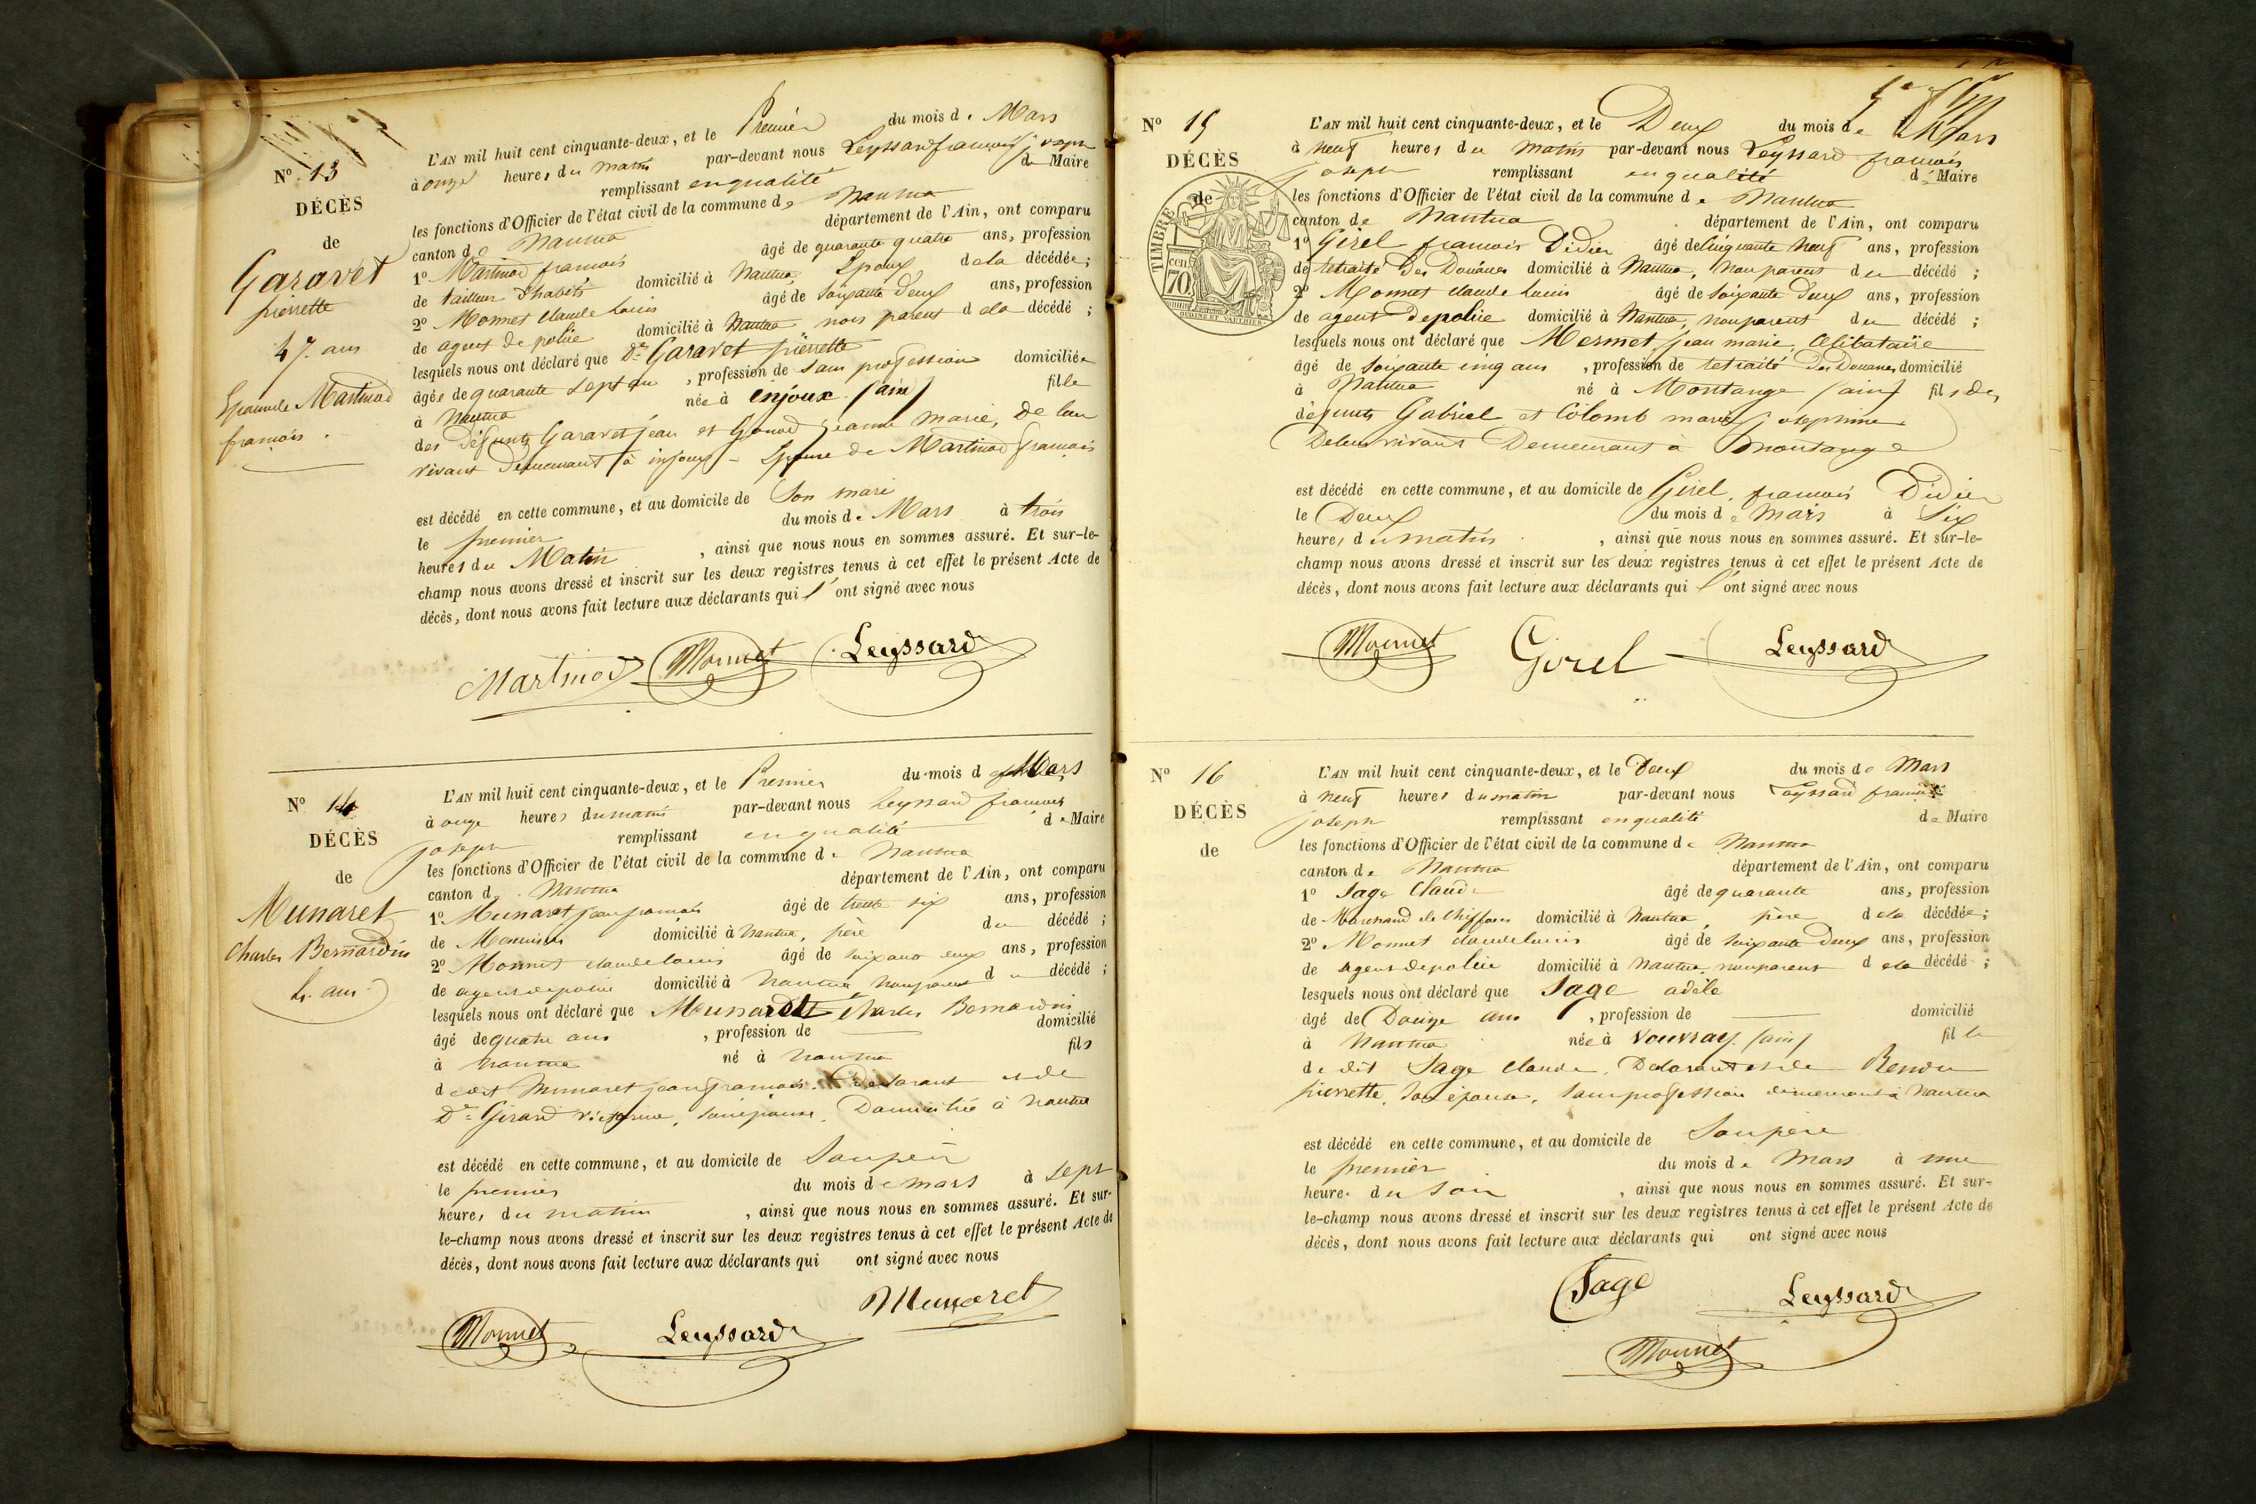 N° 13
DÉCÈS
de
Garavet
pierrette
47 ans
Epouse de Martinod
francois
L'AN mil huit cent cinquante-deux, et le Premier du mois de Mars
à onze heures du matin par-devant nous Leyssard francois joseph
remplissant en qualité de Maire
les fonctions d'Officier de l'état civil de la commune de Nantua
canton de Nantua département de l'Ain, ont comparu
1° Martinod francois âgé de quarante quatre ans, profession
de tailleur d'habits domicilié à Nantua, Epoux de la décédée;
2° Monnet claude Louis âgé de soixante deux ans, profession
de agent de police domicilié à Nantua, non parent de la décédé ;
lesquels nous ont déclaré que De Garavet pierrette
âgée de quarante sept an , profession de sans profession domiciliée
à Nantua née à injoux (ain) fille
des défunts Garavet jean et jeanne marie, de leur
vivant demeurant à injoux - Epouse de Martinod francois
est décédé en cette commune, et au domicile de Son mari
le premier du mois de Mars à trois
heures du Matin , ainsi que nous nous en sommes assuré. Et sur-le-
champ nous avons dressé et inscrit sur les deux registres tenus à cet effet le présent Acte de
décès, dont nous avons fait lecture aux déclarants qui l'ont signé avec nous
Martinod Monnet Leyssard
N° 14
DÉCÈS
de
Munaret
Charles Bernardin
4 ans
L'AN mil huit cent cinquante-deux, et le Premier du mois de Mars
à onze heures du matin par-devant nous Leyssard francois
joseph remplissant en qualité de Maire
les fonctions d'Officier de l'état civil de la commune de Nantua
canton de Nantua département de l'Ain, ont comparu
1° Munaret jean francois âgé de trente six ans, profession
de Menuisier domicilié à Nantua, père du décédé ;
2° Monnet claude louis âgé de soixante deux ans, profession
de agent de police domicilié à Nantua, non parent du décédé ;
lesquels nous ont déclaré que Munaret Charles Bernardin
âgé de quatre ans , profession de domicilié
à Nantua né à Nantua fils
dudit Munaret jean francois Déclarant et de
De Girard victorine, son épouse, Domiciliée à Nantua
est décédé en cette commune, et au domicile de Son père
le premier du mois de mars à sept
heures du matin , ainsi que nous nous en sommes assuré. Et sur-
le-champ nous avons dressé et inscrit sur les deux registres tenus à cet effet le présent Acte de
décès, dont nous avons fait lecture aux déclarants qui ont signé avec nous
Munaret
Monnet Leyssard
N° 15
DÉCÈS
de
TIMBRE
cen 70
OUDINE ET VAUTHIER
L'AN mil huit cent cinquante-deux, et le Deux du mois de Mars
à neuf heures du matin par-devant nous Leyssard francois
joseph remplissant en qualité de Maire
les fonctions d'Officier de l'état civil de la commune de Nantua
canton de Nantua département de l'Ain, ont comparu
1° Girel francois Didier âgé de Cinquante neuf ans, profession
de retraité des Douanes domicilié à Nantua, non parent du décédé ;
2° Monnet claude Louis âgé de soixante deux ans, profession
de agent de police domicilié à Nantua, non parent du décédé ;
lesquels nous ont déclaré que Mermet jean marie, Célibataire
âgé de soixante cinq ans , profession de retraité des Douanes domicilié
à Nantua né à Montange (ain) fils des
défunts Gabriel et Colomb marie josephine
De leur vivant Demeurant à Montange
est décédé en cette commune, et au domicile de Girel, francois Didier
le Deux du mois de Mars à Six
heures du matin , ainsi que nous nous en sommes assuré. Et sur-le-
champ nous avons dressé et inscrit sur les deux registres tenus à cet effet le présent Acte de
décès, dont nous avons fait lecture aux déclarants qui l'ont signé avec nous
Monnet Girel Leyssard
N° 16
DÉCÈS
de
L'AN mil huit cent cinquante-deux, et le Deux du mois de Mars
à neuf heures du matin par-devant nous Leyssard francois
joseph remplissant en qualité de Maire
les fonctions d'Officier de l'état civil de la commune de Nantua
canton de Nantua département de l'Ain, ont comparu
1° Sage Claude âgé de quarante ans, profession
de Marchand de chiffons domicilié à Nantua, père de la décédée;
2° Monnet claude louis âgé de soixante deux ans, profession
de agent de police domicilié à Nantua, non parent de la décédé ;
lesquels nous ont déclaré que Sage adèle
âgé de Douze ans , profession de domicilié
à Nantua née à Vouvray (ain) fille
de dit Sage claude, Déclarant et de Rendu
pierrette, son épouse, sans profession demeurant à Nantua
est décédé en cette commune, et au domicile de Son père
le premier du mois de Mars à une
heure du soir , ainsi que nous nous en sommes assuré. Et sur-
le-champ nous avons dressé et inscrit sur les deux registres tenus à cet effet le présent Acte de
décès, dont nous avons fait lecture aux déclarants qui ont signé avec nous
Sage Leyssard
Monnet